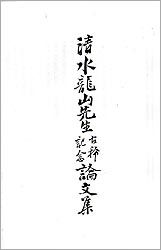 清水龍山先生古稀記念論文集